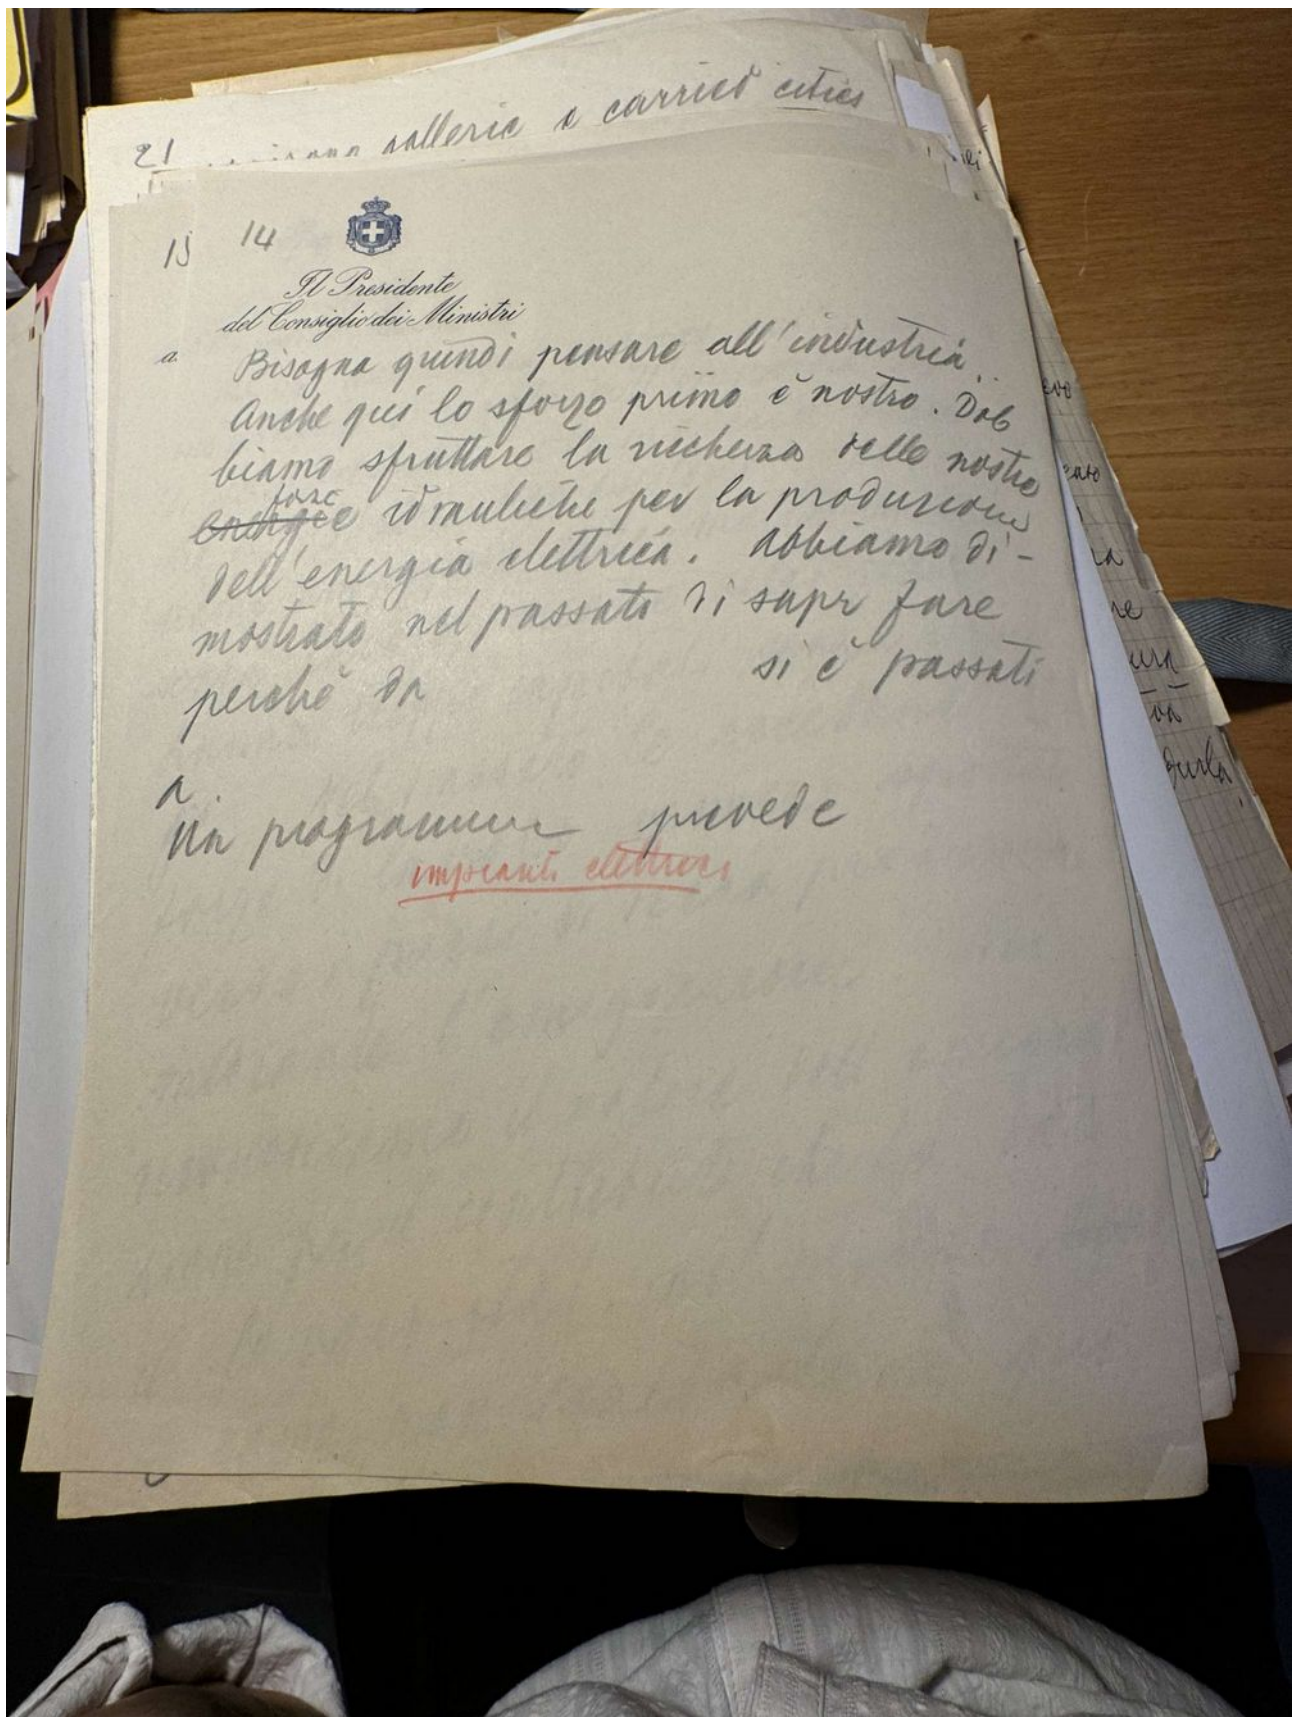 21
gallerie e carried cities
15 14
Il Presidente
del Consiglio dei Ministri
a
Bisogna quindi pensare all'industria.
Anche qui lo sforzo primo è nostro. Dob
biamo sfruttare la ricchezza delle nostre
forze
energie idrauliche per la produzione
dell'energia elettrica. Abbiamo di-
mostrato nel passato di saper fare
perchè da si è passati
a.
Un programma prevede
impianti elettrici